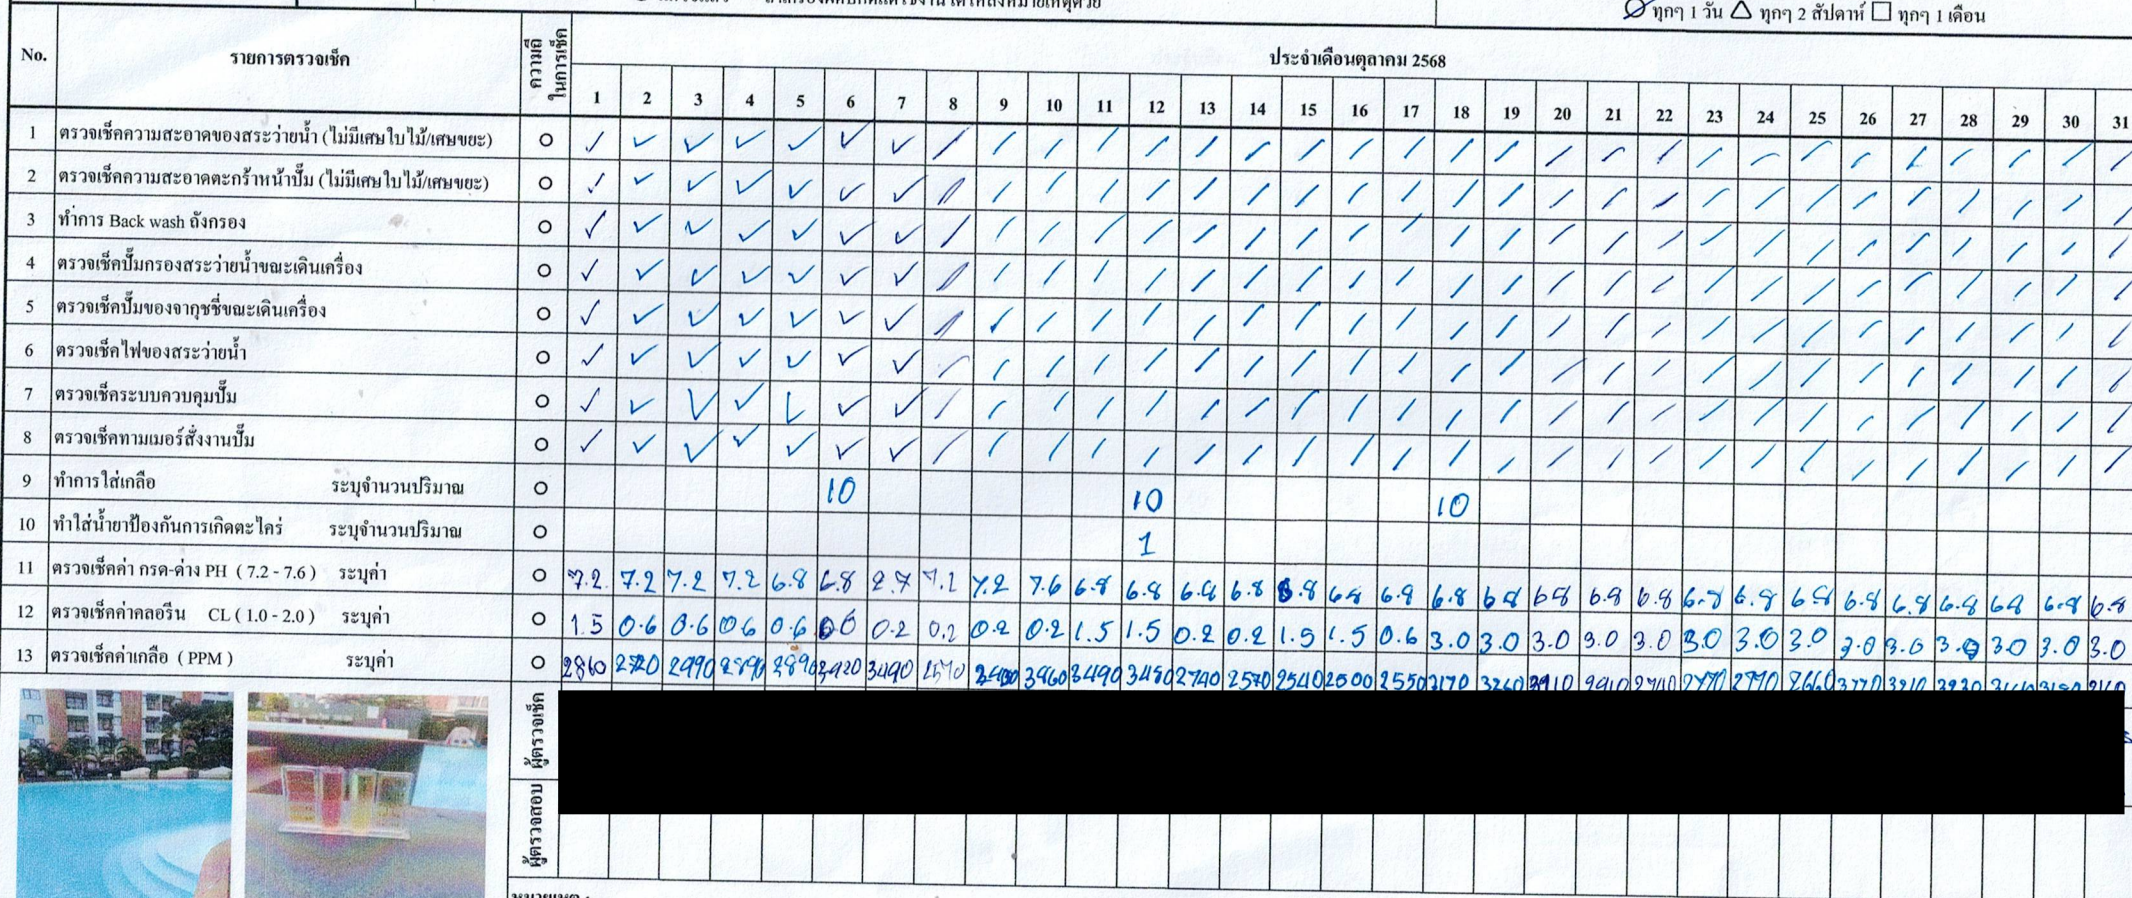 ทุกๆ 1 วัน △ ทุกๆ 2 สัปดาห์ □ ทุกๆ 1 เดือน
No. รายการตรวจเช็ค ความถี่ในการเช็ค ประจำเดือนตุลาคม 2568
1 2 3 4 5 6 7 8 9 10 11 12 13 14 15 16 17 18 19 20 21 22 23 24 25 26 27 28 29 30 31
1 ตรวจเช็คความสะอาดของสระว่ายน้ำ (ไม่มีเศษใบไม้/เศษขยะ) O
2 ตรวจเช็คความสะอาดตะกร้าหน้าปั๊ม (ไม่มีเศษใบไม้/เศษขยะ) O
3 ทำการ Back wash ถังกรอง O
4 ตรวจเช็คปั๊มกรองสระว่ายน้ำขณะเดินเครื่อง O
5 ตรวจเช็คปั๊มของจากุชชี่ขณะเดินเครื่อง O
6 ตรวจเช็คไฟของสระว่ายน้ำ O
7 ตรวจเช็คระบบควบคุมปั๊ม O
8 ตรวจเช็คทามเมอร์สั่งงานปั๊ม O
9 ทำการใส่เกลือ ระบุจำนวนปริมาณ O 10 10 10
10 ทำใส่น้ำยาป้องกันการเกิดตะไคร่ ระบุจำนวนปริมาณ O 1
11 ตรวจเช็คค่า กรด-ด่าง PH ( 7.2 - 7.6 ) ระบุค่า O 7.2 7.2 7.2 7.2 6.8 6.8 7.2 7.6 6.8 6.8 6.8 6.8 6.8 6.8 6.8 6.8 6.8 6.8 6.8 6.8 6.8 6.8 6.8 6.8 6.8 6.8 6.8 6.8
12 ตรวจเช็คค่าคลอรีน CL ( 1.0 - 2.0 ) ระบุค่า O 1.5 0.6 0.6 0.6 0.6 0.6 0.2 0.2 0.2 0.2 1.5 1.5 0.2 0.2 1.5 1.5 0.6 3.0 3.0 3.0 3.0 3.0 3.0 3.0 3.0 3.0 3.0 3.0 3.0 3.0 3.0
13 ตรวจเช็คค่าเกลือ ( PPM ) ระบุค่า O 2860 2990 3490 3490 3480 2740 2570 2540 2500 2550
ผู้ตรวจเช็ค
ผู้ตรวจสอบ